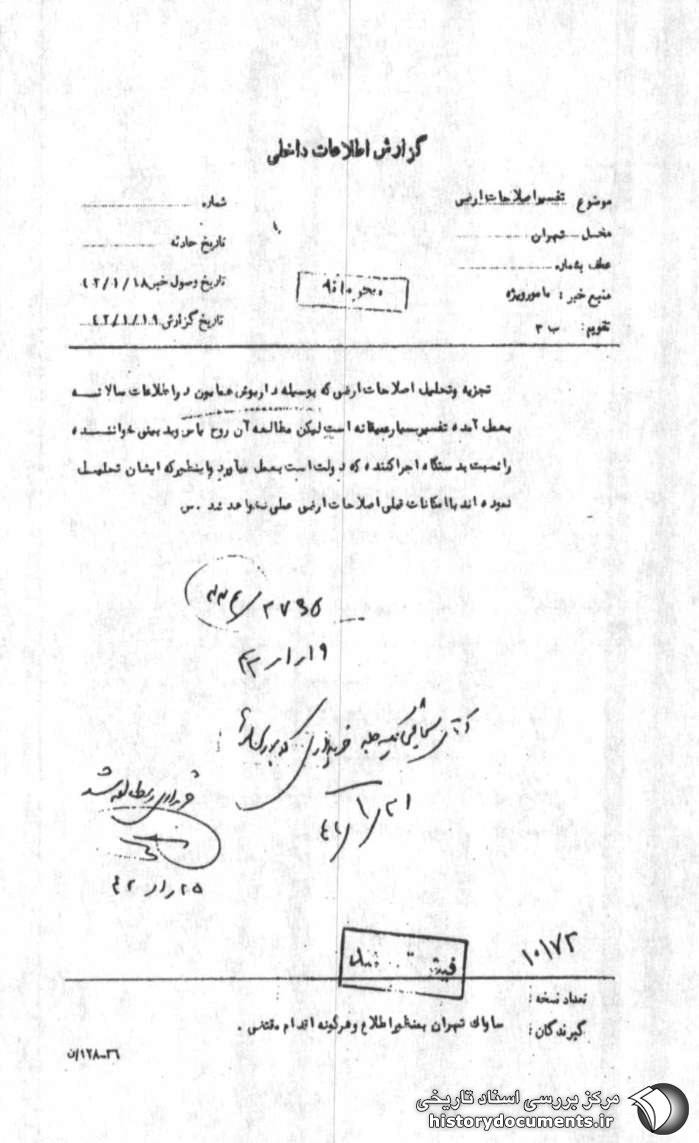 گزارش اطلاعات داخلی
موضوع تفسیر اصلاحات ارضی
محل تهران
عطف بشماره
منبع خبر : مامور ویژه
تقویم : ب ۳
شماره
تاریخ حادثه
تاریخ وصول خبر ۴۲/۱/۱۸
تاریخ گزارش ۴۲/۱/۱۹
محرمانه
تجزیه و تحلیل اصلاحات ارضی که بوسیله داریوش همایون در اطلاعات سالانه
بعمل آمده تفسیر بسیار عمیقانه است لیکن مطالعه آن روح یاس و بدبینی خواننده
را نسبت بدستگاه اجرا کننده که دولت است بعمل میآورد و بنظیر که ایشان تحلیل
نموده اند با امکانات قبلی اصلاحات ارضی عملی نخواهد شد . س
۱۹ ر ۱ ر ۴۲
۴۲/۱/۲۱
۲۵ ر ۱ ر ۴۲
۱۰۱۷۲
تعداد نسخه :
گیرندگان : ساواک تهران بمنظور اطلاع و هرگونه اقدام مقتضی .
۳۶-۱۲۸/ن
مرکز بررسی اسناد تاریخی
historydocuments.ir